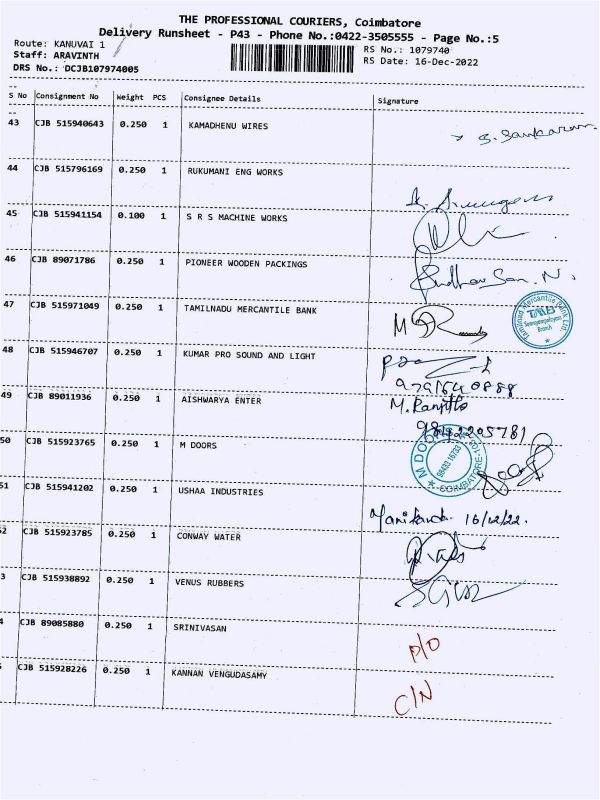 THE PROFESSIONAL COURIERS, Coimbatore
Delivery Runsheet - P43 - Phone No.:0422-3505555 - Page No.:5
Route: KANUVAI 1
RS No.: 1079740
Staff: ARAVINTH
RS Date: 16-Dec-2022
DRS No.: DCJB107974005
S No Consignment No Weight PCS Consignee Details Signature
43 CJB 515940643 0.250 1 KAMADHENU WIRES S. Sankaran
44 CJB 515796169 0.250 1 RUKUMANI ENG WORKS
45 CJB 515941154 0.100 1 S R S MACHINE WORKS
46 CJB 89071786 0.250 1 PIONEER WOODEN PACKINGS
47 CJB 515971049 0.250 1 TAMILNADU MERCANTILE BANK
Tamilnad Mercantile Bank Ltd.
TMB
Branch
48 CJB 515946707 0.250 1 KUMAR PRO SOUND AND LIGHT
49 CJB 89011936 0.250 1 AISHWARYA ENTER M. Ranjith
50 CJB 515923765 0.250 1 M DOORS
M DOORS
COIMBATORE
51 CJB 515941202 0.250 1 USHAA INDUSTRIES 16/12/22.
52 CJB 515923785 0.250 1 CONWAY WATER
3 CJB 515938892 0.250 1 VENUS RUBBERS
4 CJB 89085880 0.250 1 SRINIVASAN P/O
CJB 515928226 0.250 1 KANNAN VENGUDASAMY C/N